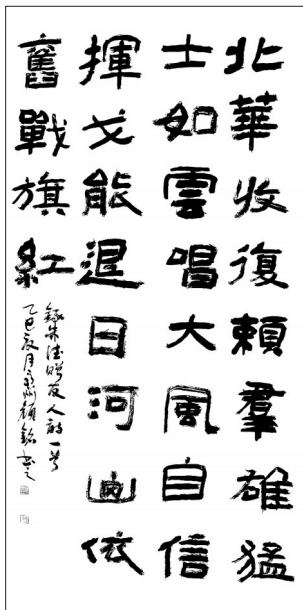 北華收復賴羣雄猛
士如雲唱大風自信
揮戈能退日河山依
舊戰旗紅
錄朱德贈友人詩一首
乙巳辰月泉州